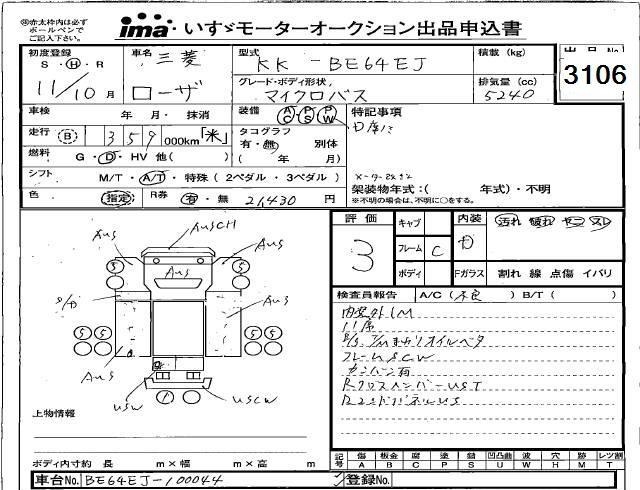 ㊟赤太枠内は必ず
ボールペンで
ご記入下さい。
ima いすゞモーターオークション出品申込書
初度登録 車名 型式 積載 (kg) 出品No.
S・H・R 三菱 KK - BE64EJ 3106
11/10 月 ローザ グレード・ボディ形状 排気量 (cc)
マイクロバス 5240
車検 年 月・ 抹消 装備 AC PS PW 特記事項
走行 B 359 000km 「米」 タコグラフ
有・無 別体
燃料 G・D・HV 他( ) ( 年 月)
シフト M/T・A/T・特殊 (2ペダル・3ペダル) 架装物年式:( 年式)・不明
※不明の場合は、不明に○をする。
色 指定 R券 有・無 21,430 円
評価 キャブ 内装 汚れ 破れ ヤニ スレ
3 フレーム C D
ボディ Fガラス 割れ 線 点傷 イバリ
検査員報告 A/C (不良) B/T ( )
内装外IM
11席
フレームSCW
カンバン有
RクロスメンバーUST
AUSCH
AUS AUS
AUS
5 5
S/D AUS
5 5 5 5
AUS
USW USCW
上物情報
ボディ内寸約 長 m×幅 m×高 m
記号 傷 板金 腐 塗 錆 凹凸曲 波 穴 跡 レツ割
A B C P S U W H M T
車台No. BE64EJ-100044 登録No.